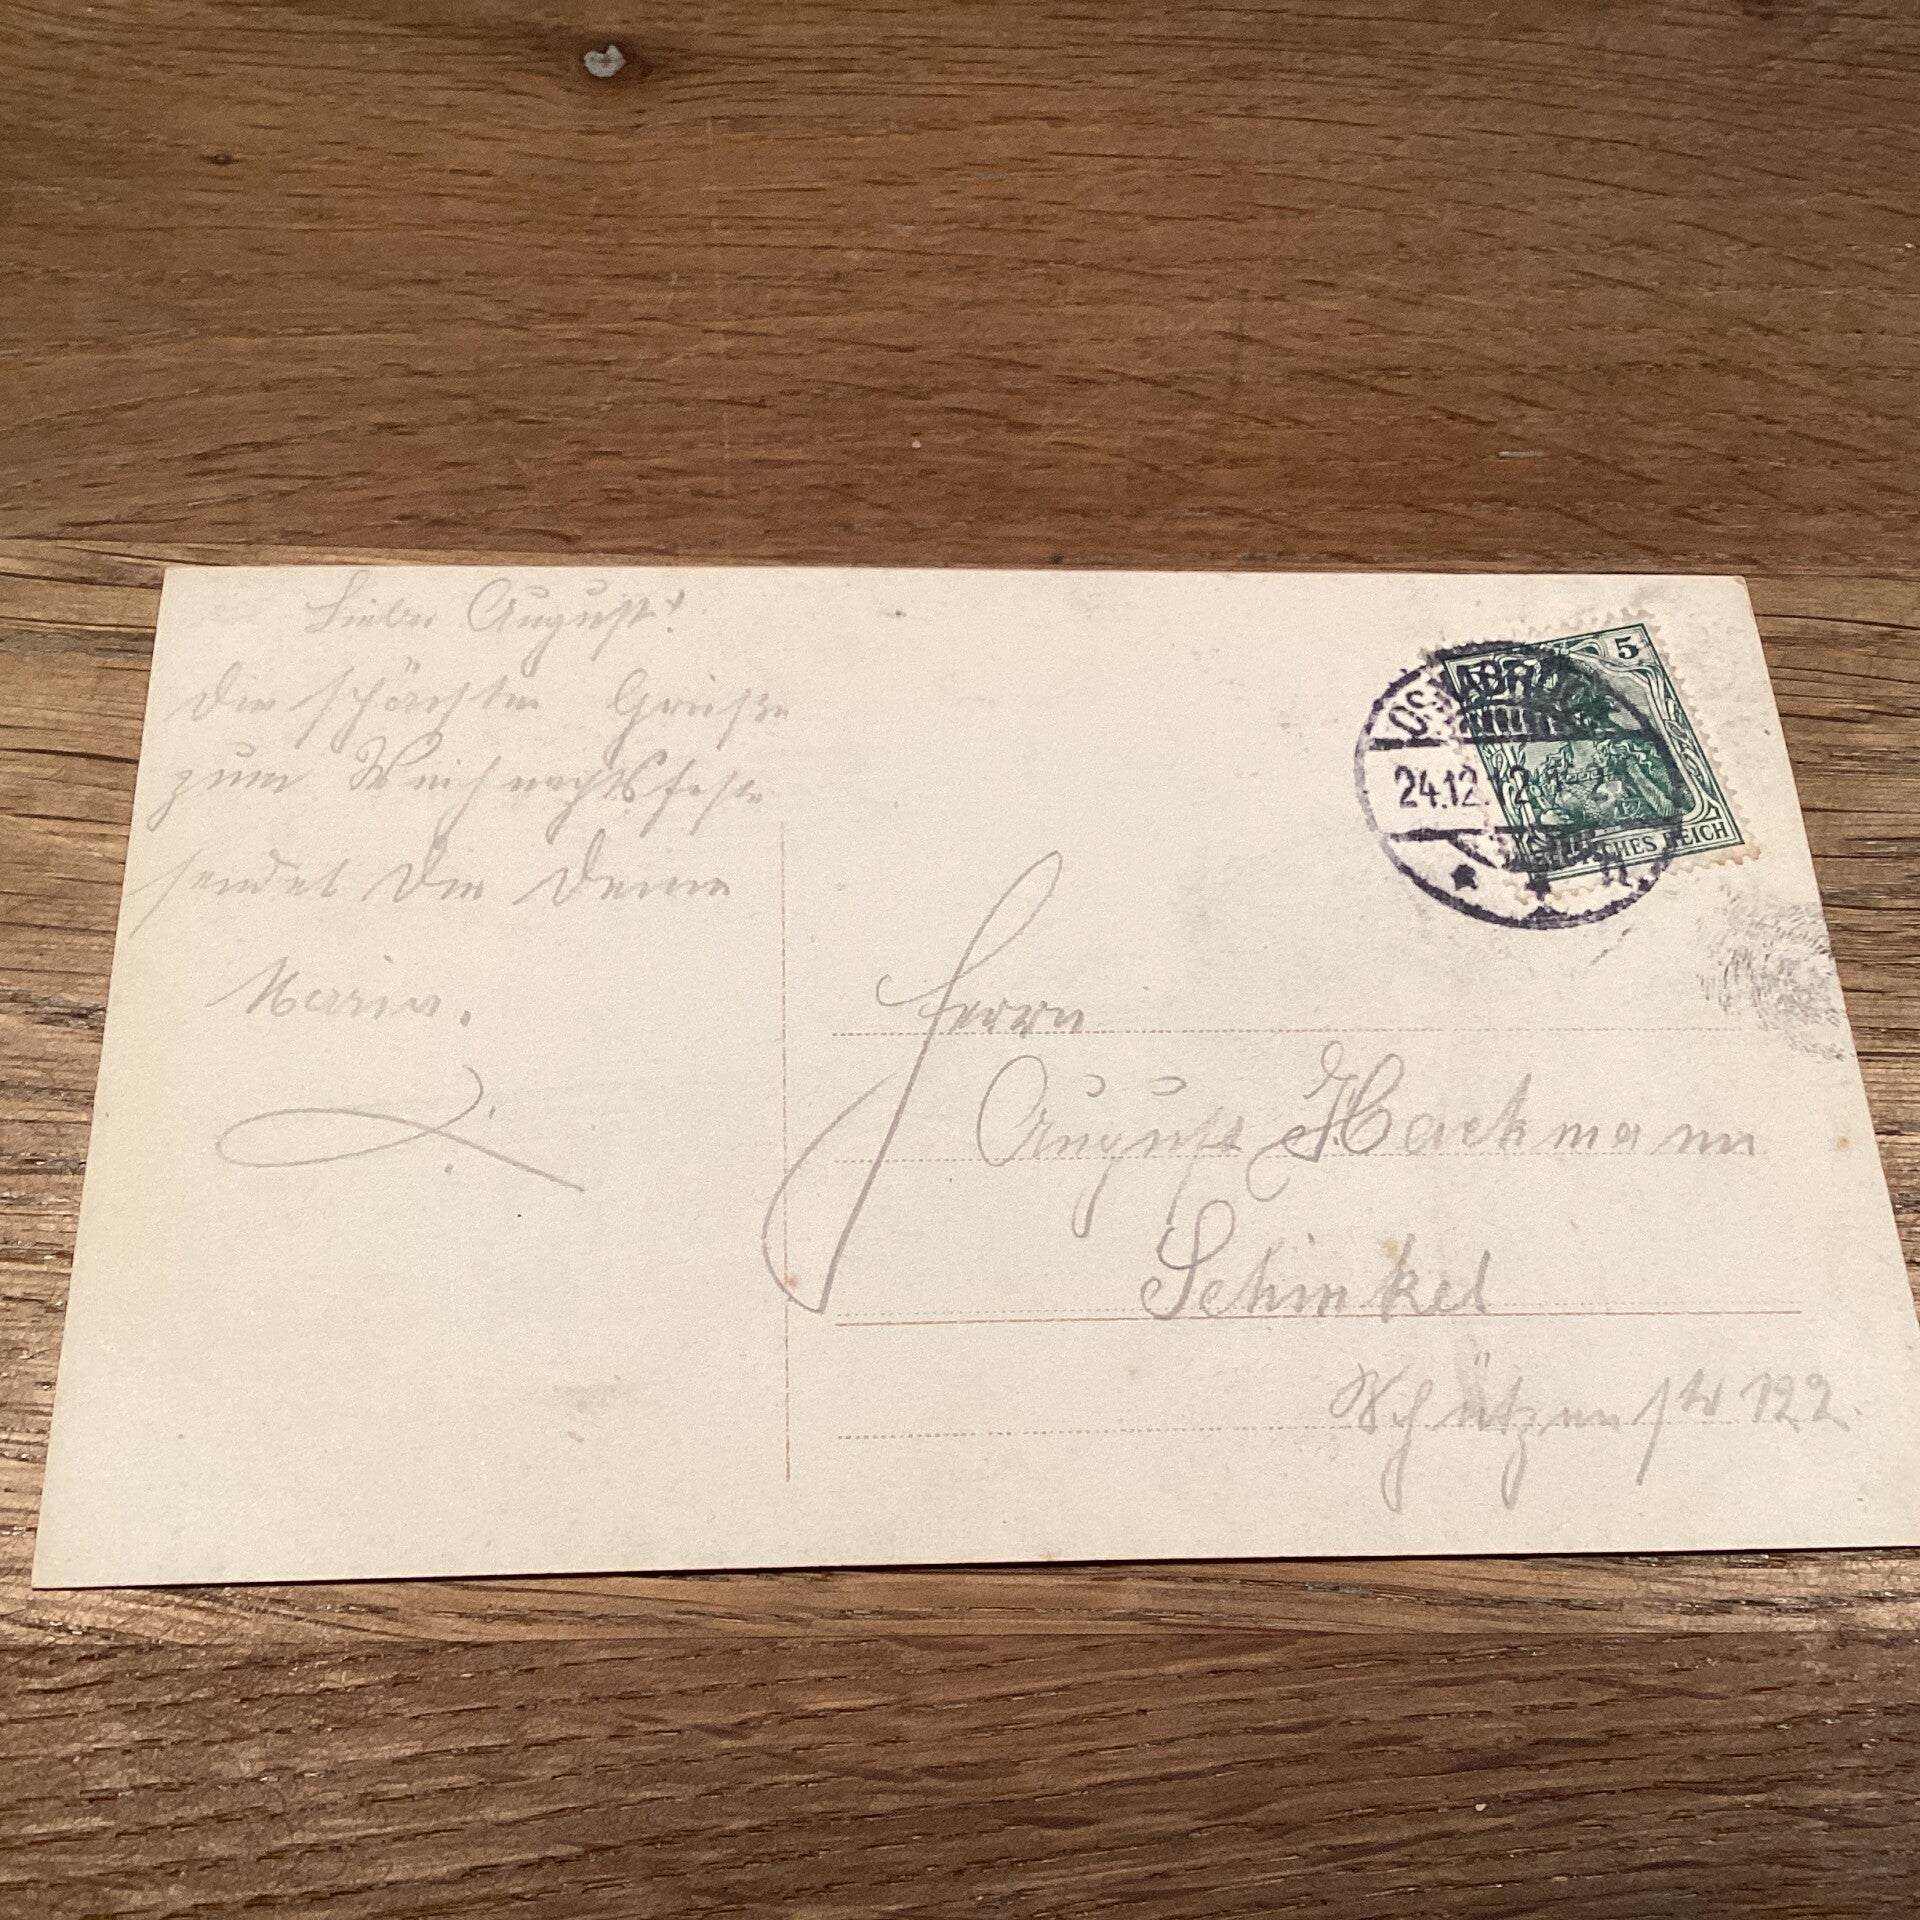 Lieber August!
Die schönsten Grüße
zum Weihnachtsfeste
sendet Dir Deine
Maria.
5
OSNABRÜCK
24.12.12
DEUTSCHES REICH
Herrn
August Hackmann
Schinkel
Schützenstr 122.